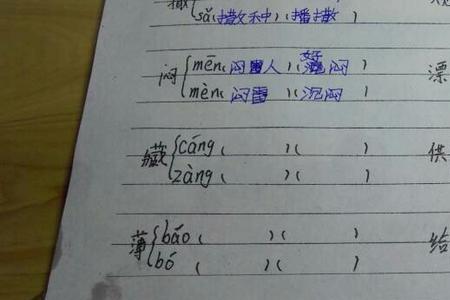 sǎ(撒种)(播撒)
闷 mēn(闷人)(闷)
mèn(闷雷)(沉闷) 漂
藏 cáng( )( )
zàng( )( ) 供
薄 báo( )( )
bó( )( ) 给